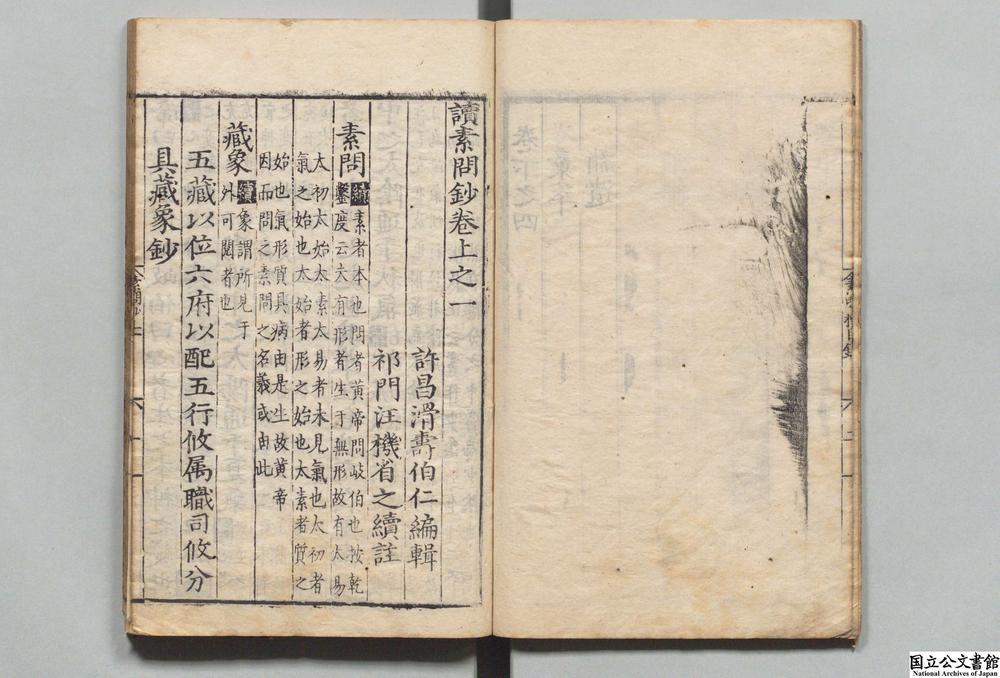 讀素問鈔卷上之一
許昌滑壽伯仁編輯
祁門汪機省之續註
素問
續素者本也問者黃帝問岐伯也按乾
鑿度云夫有形者生于無形故有太易
太初太始太素太易者未見氣也太初者
氣之始也太始者形之始也太素者質之
始也氣形質具病由是生故黃帝
因而問之素問之名義或由此
藏象
續象謂所見于
外可閱者也
五藏以位六府以配五行攸属職司攸分
具藏象鈔
卷下之四
国立公文書館
National Archives of Japan